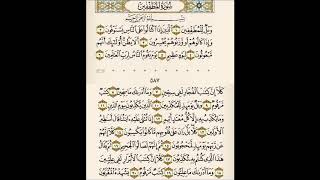 سُورَةُ المُطَفِّفِينَ
بِسْمِ ٱللَّهِ ٱلرَّحْمَٰنِ ٱلرَّحِيمِ
وَيْلٌ لِّلْمُطَفِّفِينَ ١ ٱلَّذِينَ إِذَا ٱكْتَالُوا۟ عَلَى ٱلنَّاسِ يَسْتَوْفُونَ ٢
وَإِذَا كَالُوهُمْ أَو وَّزَنُوهُمْ يُخْسِرُونَ ٣ أَلَا يَظُنُّ أُو۟لَٰٓئِكَ أَنَّهُم
مَّبْعُوثُونَ ٤ لِيَوْمٍ عَظِيمٍ ٥ يَوْمَ يَقُومُ ٱلنَّاسُ لِرَبِّ ٱلْعَٰلَمِينَ ٦
٥٨٧
كَلَّآ إِنَّ كِتَٰبَ ٱلْفُجَّارِ لَفِى سِجِّينٍ ٧ وَمَآ أَدْرَىٰكَ مَا سِجِّينٌ ٨ كِتَٰبٌ
مَّرْقُومٌ ٩ وَيْلٌ يَوْمَئِذٍ لِّلْمُكَذِّبِينَ ١٠ ٱلَّذِينَ يُكَذِّبُونَ بِيَوْمِ ٱلدِّينِ ١١
وَمَا يُكَذِّبُ بِهِۦٓ إِلَّا كُلُّ مُعْتَدٍ أَثِيمٍ ١٢ إِذَا تُتْلَىٰ عَلَيْهِ ءَايَٰتُنَا قَالَ أَسَٰطِيرُ
ٱلْأَوَّلِينَ ١٣ كَلَّا بَلْ رَانَ عَلَىٰ قُلُوبِهِم مَّا كَانُوا۟ يَكْسِبُونَ ١٤ كَلَّآ
إِنَّهُمْ عَن رَّبِّهِمْ يَوْمَئِذٍ لَّمَحْجُوبُونَ ١٥ ثُمَّ إِنَّهُمْ لَصَالُوا۟ ٱلْجَحِيمِ ١٦ ثُمَّ يُقَالُ
هَٰذَا ٱلَّذِى كُنتُم بِهِۦ تُكَذِّبُونَ ١٧ كَلَّآ إِنَّ كِتَٰبَ ٱلْأَبْرَارِ لَفِى عِلِّيِّينَ
١٨ وَمَآ أَدْرَىٰكَ مَا عِلِّيُّونَ ١٩ كِتَٰبٌ مَّرْقُومٌ ٢٠ يَشْهَدُهُ ٱلْمُقَرَّبُونَ